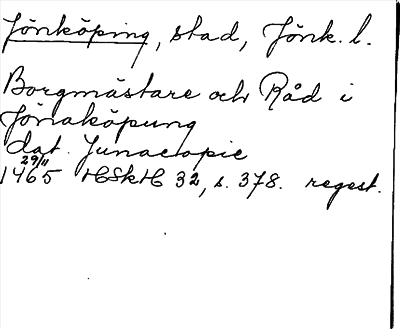 Jönköping, stad, Jönk. l.
Borgmästare och Råd i
Jönaköpung
dat. Junacopie
29/11
1465 HSkH 32, s. 378. regest.